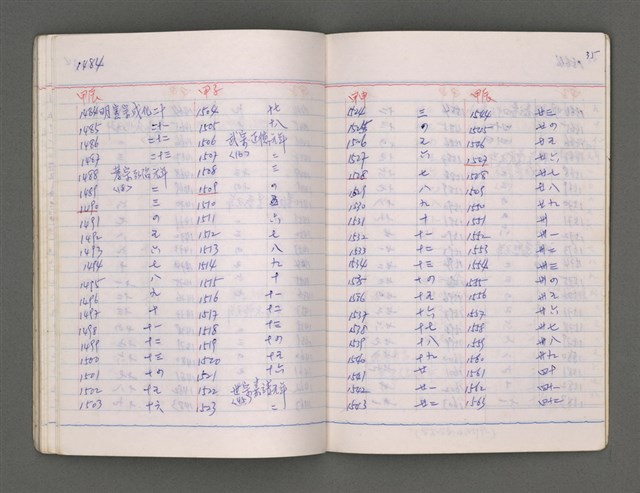 1484
甲辰 甲子
1484 明憲宗成化二十 1504 十七
1485 二十一 1505 十八
1486 二十二 1506 武宗正德元年
1487 二十三 1507 <16> 二
1488 孝宗弘治元年 1508 三
1489 <18> 二 1509 の
1490 三 1510 五
1491 の 1511 六
1492 五 1512 七
1493 六 1513 八
1494 七 1514 九
1495 八 1515 十
1496 九 1516 十一
1497 十 1517 十二
1498 十一 1518 十三
1499 十二 1519 十の
1500 十三 1520 十五
1501 十の 1521 十六
1502 十五 1522 世宗嘉靖元年
1503 十六 1523 二
35
甲申 甲辰
1524 三 1544 廿三
1525 の 1545 廿の
1526 五 1546 廿五
1527 六 1547 廿六
1528 七 1548 廿七
1529 八 1549 廿八
1530 九 1550 廿九
1531 十 1551 卅
1532 十一 1552 卅一
1533 十二 1553 卅二
1534 十三 1554 卅三
1535 十の 1555 卅の
1536 十五 1556 卅五
1537 十六 1557 卅六
1538 十七 1558 卅七
1539 十八 1559 卅八
1540 十九 1560 卅九
1541 廿 1561 四十
1542 廿一 1562 四十一
1543 廿二 1563 四十二